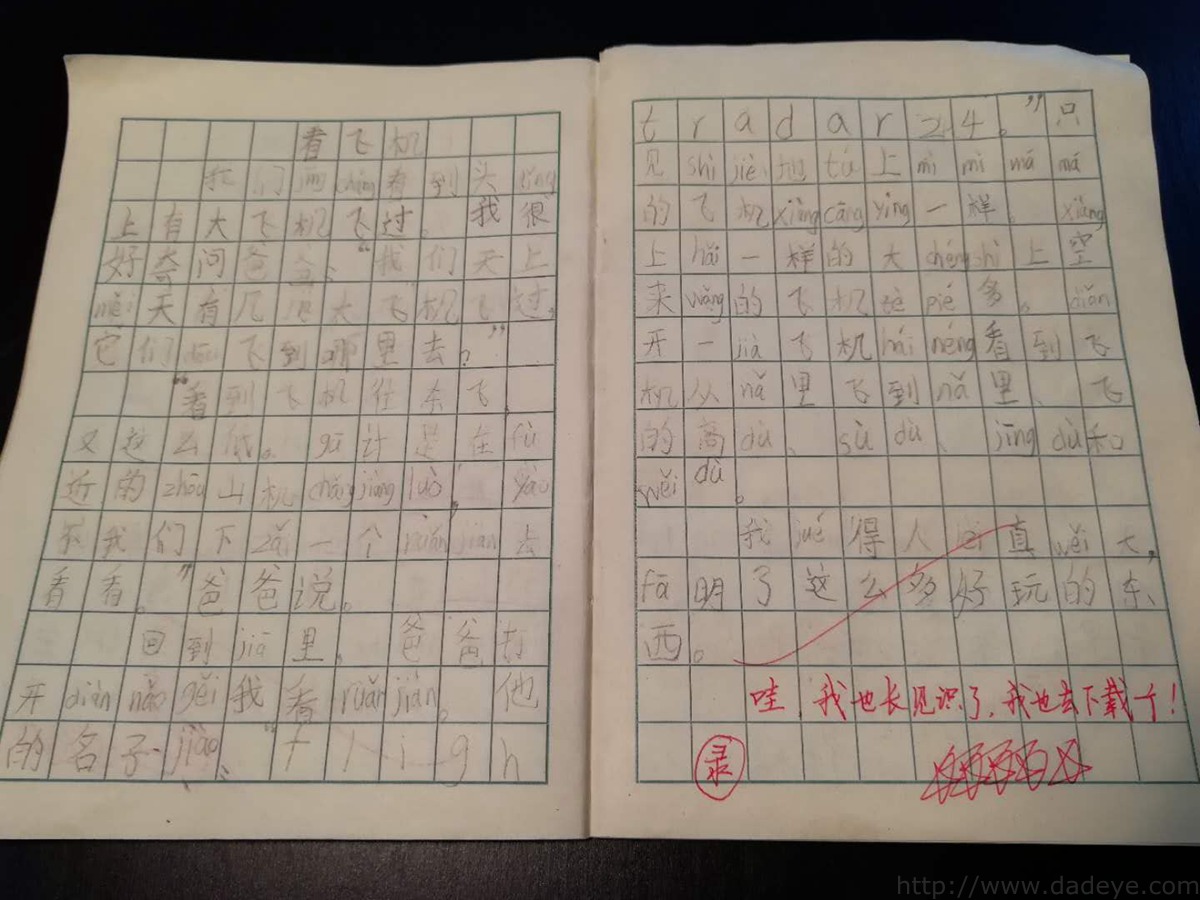 看飞机
我们常cháng看到头dǐng
上有大飞机飞过。我很
好奇问爸爸、“我们天上
měi天有几百大飞机飞过。
它们dōu飞到哪里去？”
“看到飞机往东飞，
又这么低。gū计是在fù
近的zhōu山机chǎng jiàng luò，yào
不我们下zǎi一个ruǎn jiàn去
看看。”爸爸说。
回到jiā里。爸爸打
开diàn nǎo gěi我看ruǎn jiàn。他
的名子jiào、“f l i g h
t r a d a r 2 4。”只
见shì jiè地tú上mì mì má má
的飞机xiàng cāng yíng一样。xiàng
上hǎi一样的大chéng shì上空
来wǎng的飞机tè pié多。diǎn
开一jià飞机hái néng看到飞
机从nǎ里飞到nǎ里、飞
的高dù、sù dù、jīng dù和
wěi dù。
我jué得人lèi真wěi大，
fā明了这么多好玩的东
西。
哇，我也长见识了，我也去下载个！
录
http://www.dadeye.com